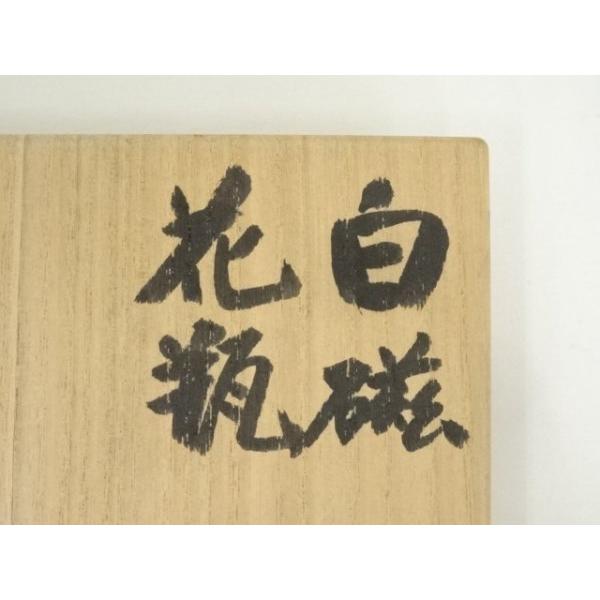 白磁
花瓶